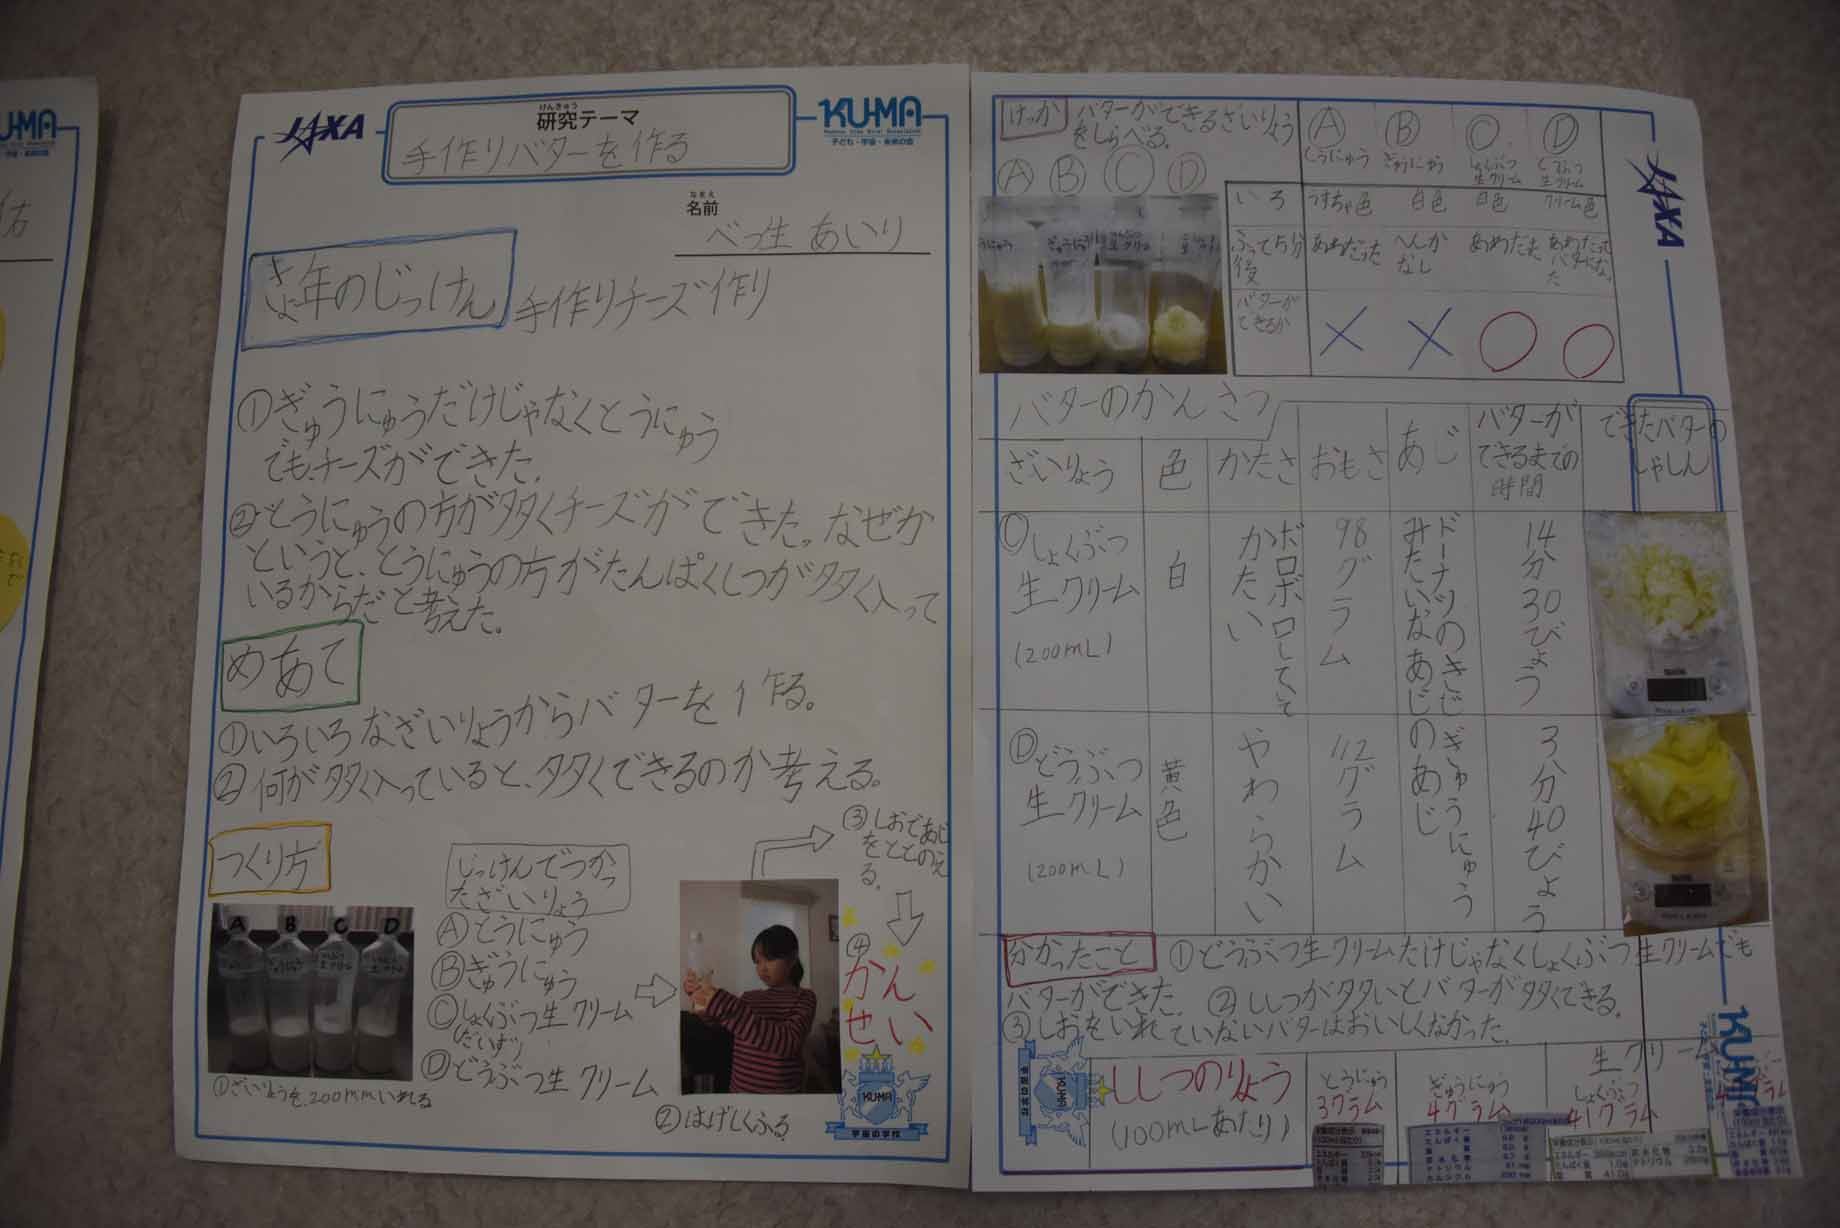 JAXA
けんきゅう
研究テーマ
手作りバターを作る
KU-MA
子ども・宇宙・未来の会
なまえ
名前
べっ生 あいり
きょ年のじっけん 手作りチーズ作り
①ぎゅうにゅうだけじゃなくとうにゅう
でも、チーズができた。
②とうにゅうの方が多くチーズができた。なぜか
というと、とうにゅうの方がたんぱくしつが多く入って
いるからだと考えた。
めあて
①いろいろなざいりょうからバターを作る。
②何が多く入っていると、多くできるのか考える。
つくり方
A B C D
①ざいりょうを、200mmいれる
じっけんでつかっ
たざいりょう
Ⓐとうにゅう
Ⓑぎゅうにゅう
Ⓒしょくぶつ生クリーム
(だいず)
Ⓓどうぶつ生クリーム
②はげしくふる
③しおであじ
をととのえ
る。
④
かん
せい
KUMA
宇宙の学校
けっか バターができるざいりょう
をしらべる。
Ⓐ Ⓑ Ⓒ Ⓓ
Ⓐ Ⓑ Ⓒ Ⓓ
とうにゅう ぎゅうにゅう しょくぶつ生クリーム どうぶつ生クリーム
いろ うすちゃ色 白色 白色 クリーム色
ふって5分後 あわだった へんかなし あわだった あわだってバターになった
バターができるか × × ○ ○
JAXA
バターのかんさつ
ざいりょう 色 かたさ おもさ あじ バターができるまでの時間 できたバターのしゃしん
Ⓒしょくぶつ
生クリーム
(200mL)
白
ボロボロしていて
かたい
98グラム
ドーナツのきじ
みたいなあじ
14分30びょう
Ⓓどうぶつ
生クリーム
(200mL)
黄色
やわらかい
112グラム
ぎゅうにゅう
のあじ
3分40びょう
分かったこと ①どうぶつ生クリームだけじゃなくしょくぶつ生クリームでも
バターができた。 ②ししつが多いとバターが多くできる。
③しおをいれていないバターはおいしくなかった。
ししつのりょう
(100mLあたり)
とうにゅう
3グラム
ぎゅうにゅう
4グラム
生クリーム
しょくぶつ
41グラム
KUMA
宇宙の学校
KUMA